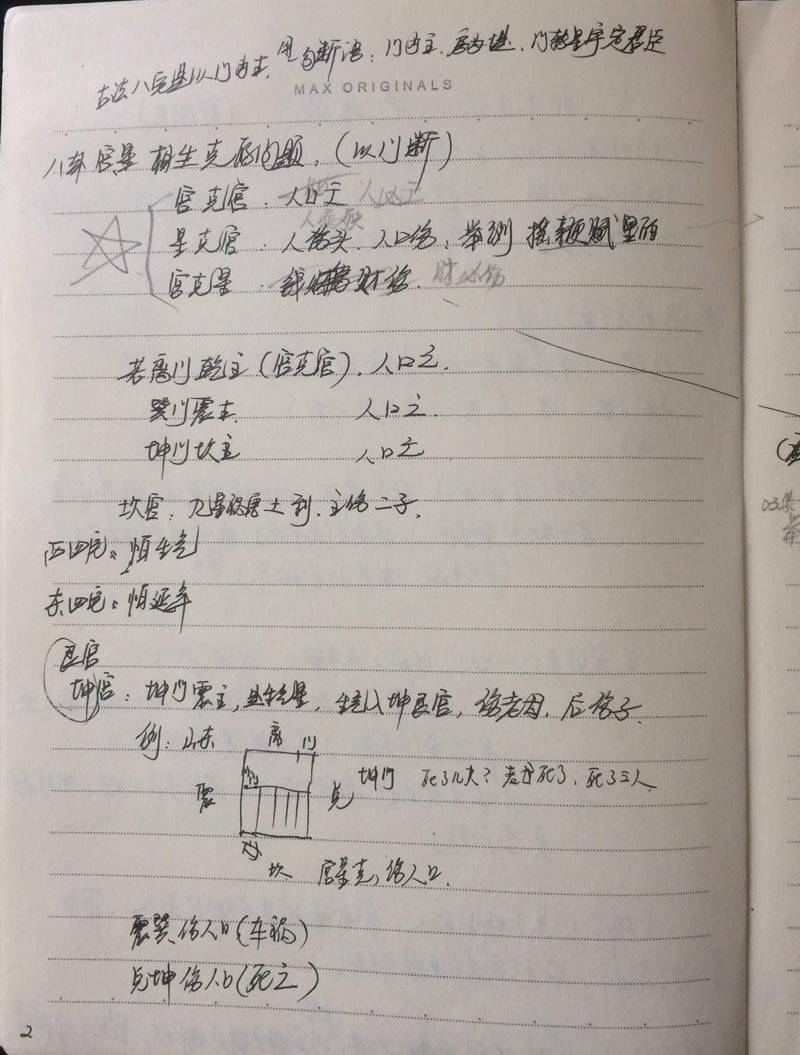 古法八宅是以门为主,用句断语:门为主,房为
MAX ORIGINALS
八卦宫星相生克应的问题。(以门断)
宫克宫.人口亡 人口亡
星克宫.人 头.人口伤,举例 摇 赋里的
宫克星. 财伤. 财必伤
若离门乾主(宫克宫).人口亡.
巽门震主 人口亡.
坤门坎主 人口亡
坎宫:凡星 土到.主伤二子.
西四宅:怕生气
东四宅:怕延年
艮宫
坤宫:坤门震主, 生气星,生气入坤艮宫,伤老母,后伤子.
例:山东 离 门
震 兑 坤门 死了几夫?老母死了.死了三人
坎 宫星克,伤人口.
震巽伤人口(车祸)
兑坤伤人口(死亡)
2